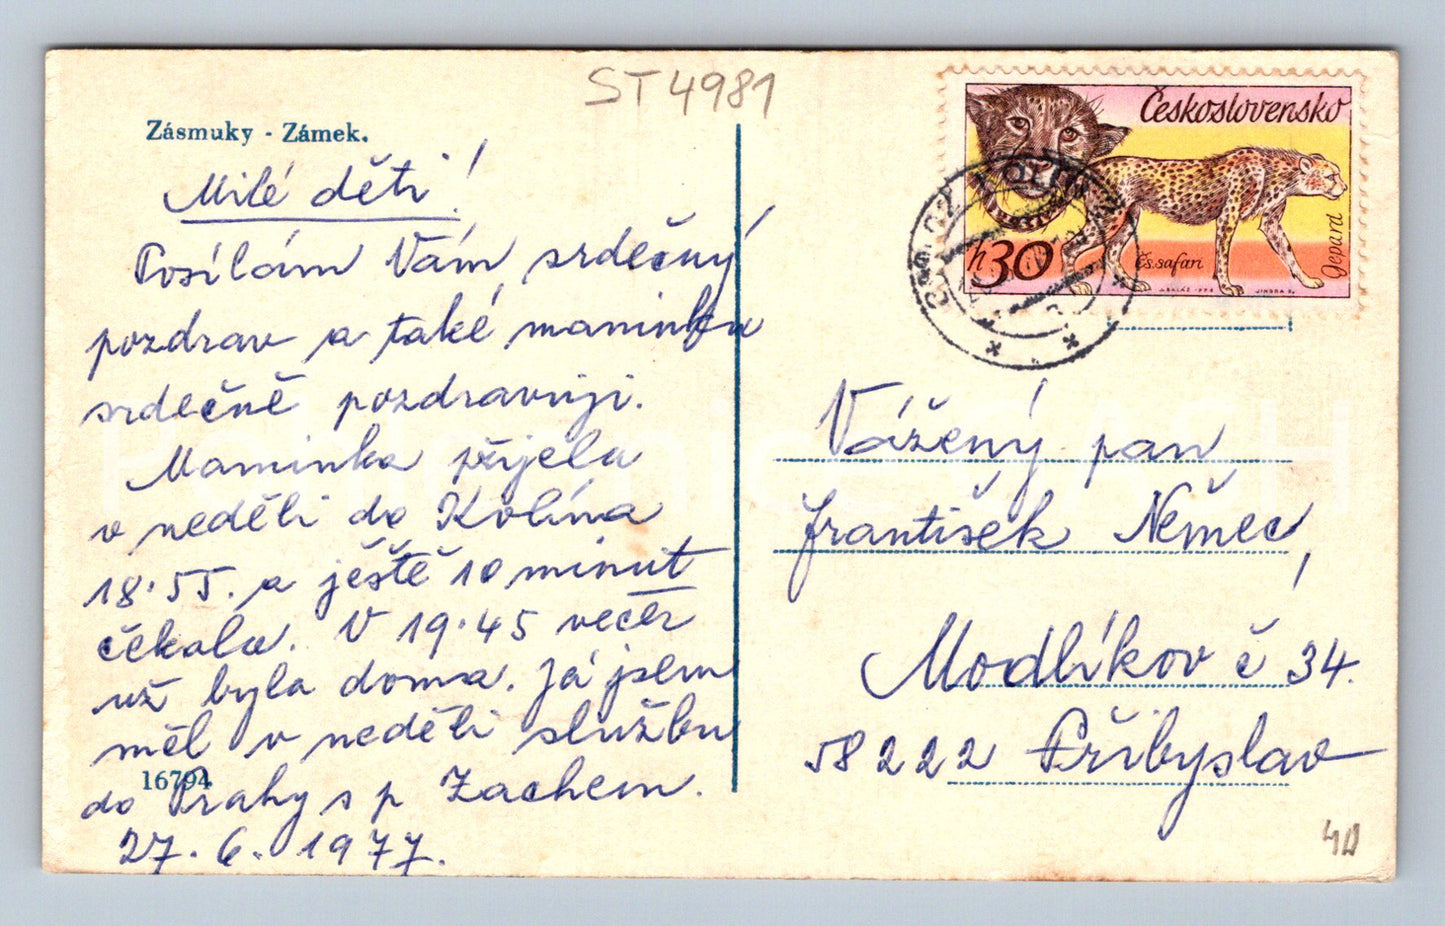 ST4981
Zásmuky - Zámek.
Milé děti!
Posílám Vám srdečný
pozdrav a také maminka
srdečně pozdravuji.
Maminka přijela
v neděli do Kolína
18.55. a ještě 10 minut
čekala. V 19.45 večer
už byla doma. Já jsem
měl v neděli službu
16794
do Prahy s p Zachem.
27. 6. 1977.
Československo
h 30
Čs. safari
Gepard
Vážený pan
František Němec,
Modlíkov č 34.
58222 Přibyslav
40